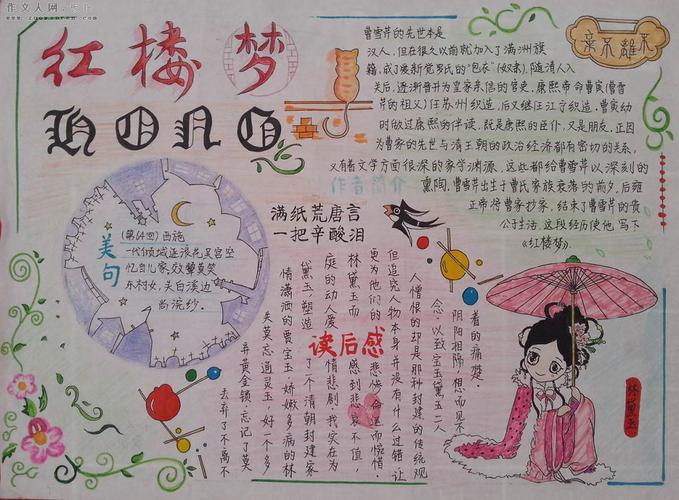 作文人网
红楼梦
HONG
曹雪芹的先世本是
汉人,但在很久以前就加入了满洲旗
籍,成了爱新觉罗氏的“包衣”(奴隶),随清入
关后,逐渐晋升为皇家亲信的官吏,康熙帝命曹寅(曹雪
芹的祖父)任苏州织造,后又继任江宁织造,曹寅幼
时做过康熙的伴读,既是康熙的臣仆,又是朋友,正因
为曹家的先世与清王朝的政治经济都有密切的关系,
又有着文学方面很深的家学渊源,这些都给曹雪芹以深刻的
熏陶,曹雪芹出生于曹氏家族衰落的前夕,后雍
正帝将曹家抄家,结束了曹雪芹的贵
公子生活,这段经历使他写下
《红楼梦》.
作者简介
满纸荒唐言
一把辛酸泪
美句
(第64回)西施
一代倾城逐浪花吴宫空
忆自儿家,效颦莫笑
东村女,头白溪边
尚浣纱.
读后感
去弃了不离不
弃黄金锁,忘记了莫
失莫忘通灵玉,好一个多
情潇洒的贾宝玉娇嫩多病的林
黛玉,塑造了个清朝封建家
庭的动人爱情悲剧.我实在为
林黛玉而感到悲哀不值
更为他们的悲惨命运而惋惜.
但追究人物本身并没有什么过错,让
人憎恨的却是那种封建的传统观
念.以致宝玉黛玉二人
阴阳相隔,想而见不
着的痛楚.
林黛玉